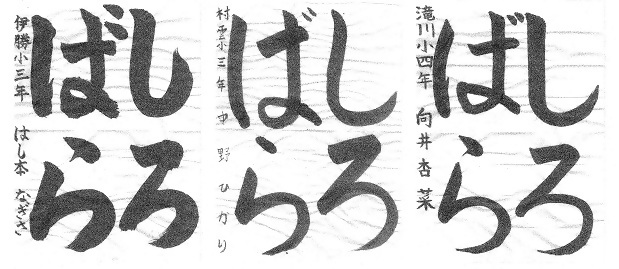 しろ
ばら
滝川小四年 向井杏菜
しろ
ばら
村雲小三年 中野ひかり
しろ
ばら
伊勝小三年 はし本なぎさ